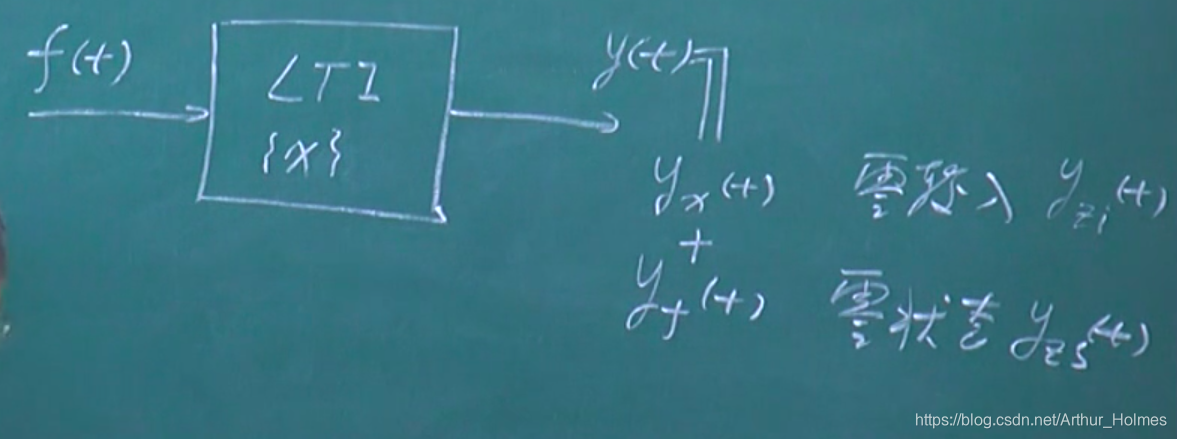 f(t)
LTI
{x}
y(t)
y_x(t) 零输入 y_zi(t)
+
y_f(t) 零状态 y_zs(t)
https://blog.csdn.net/Arthur_Holmes